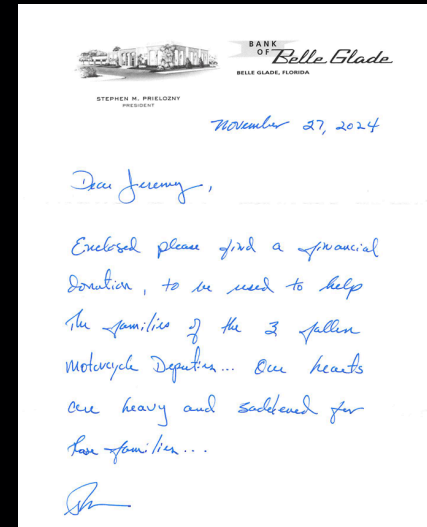 BANK
OF Belle Glade
BELLE GLADE, FLORIDA
STEPHEN M. PRIELOZNY
PRESIDENT
November 27, 2024
Dear Jeremy,
Enclosed please find a financial
donation, to be used to help
The families of the 3 fallen
Motorcycle Deputies... Our hearts
are heavy and saddened for
these families...